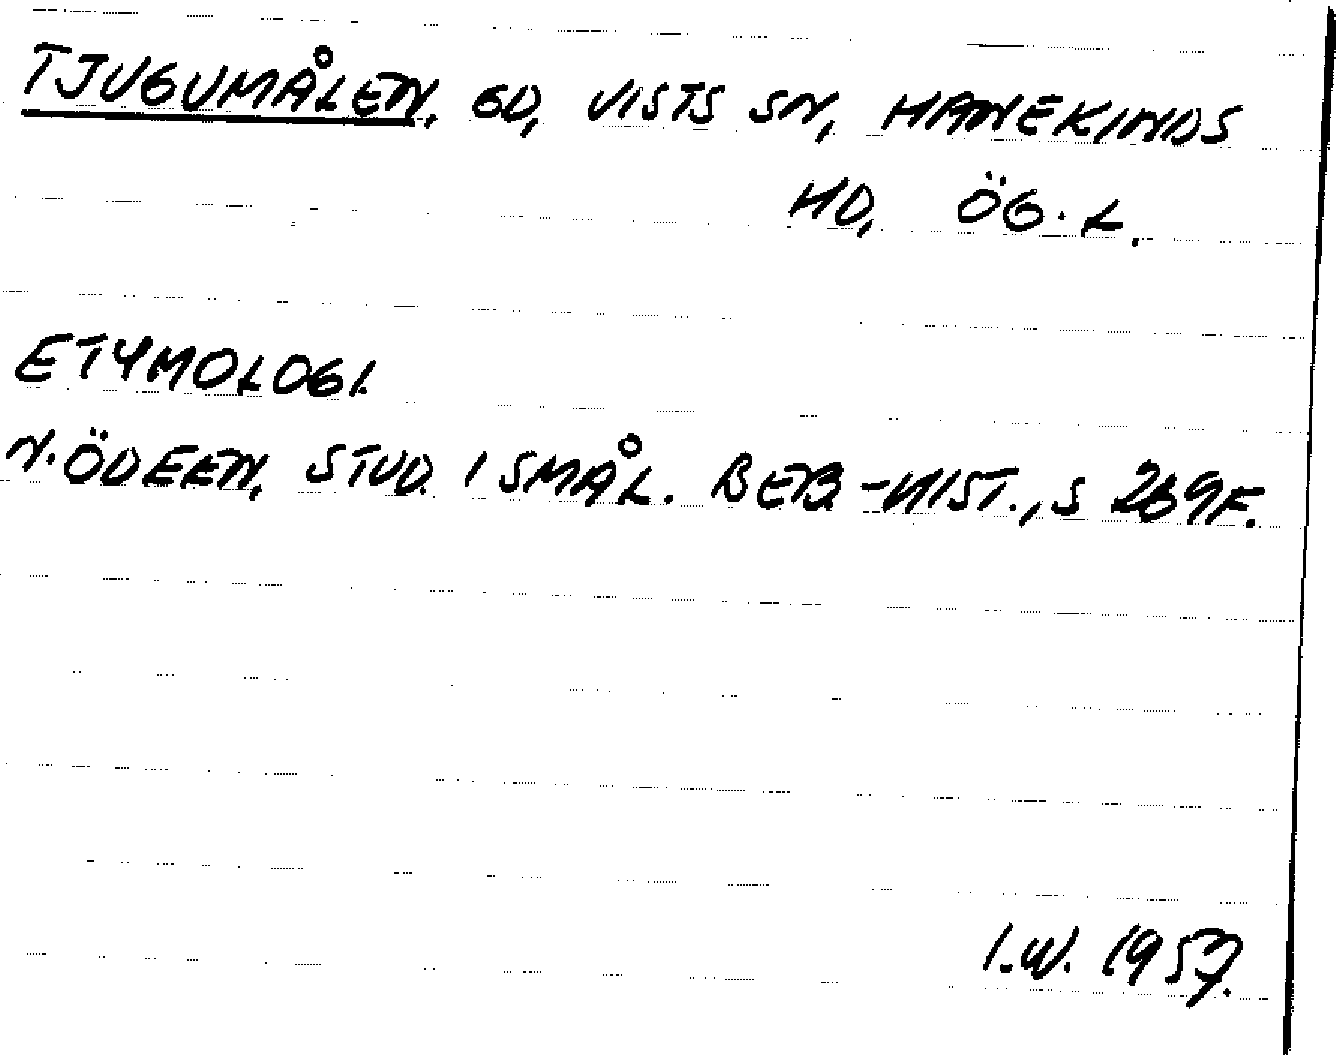 TJUGUMÅLEN, GD, VISTS SN, HANEKINDS
HD, ÖG. L.
ETYMOLOGI.
N. ÖDEEN, STUD. I SMÅL. BEB.-HIST., S 269F.
I.W. 1957.